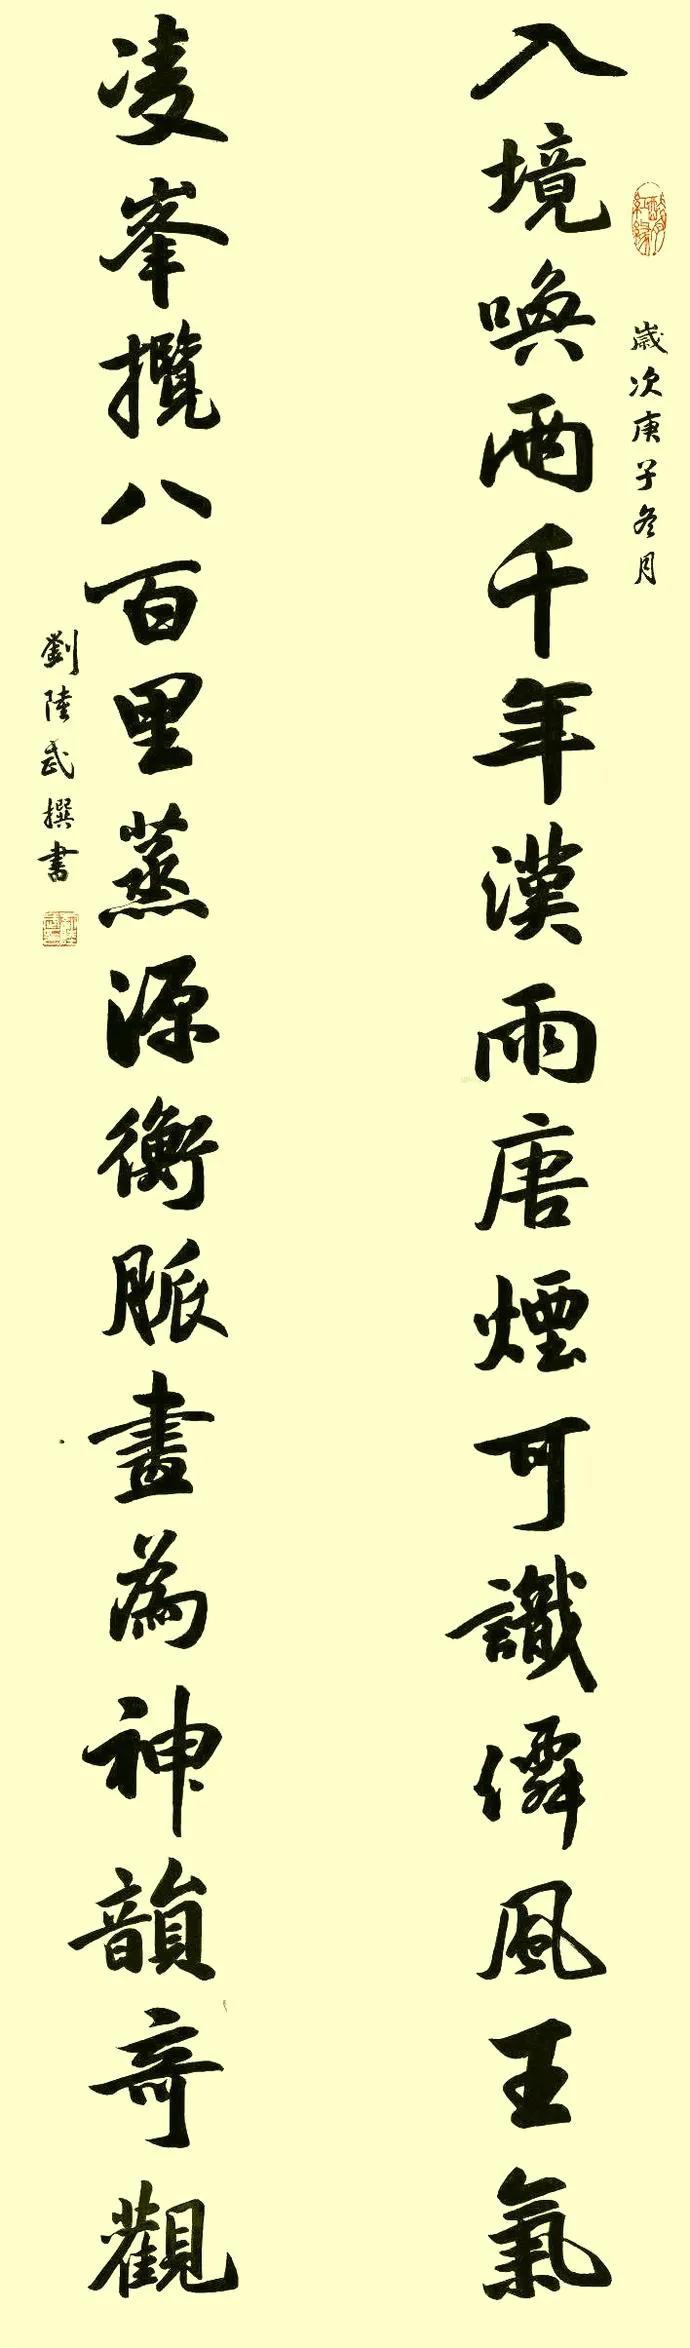 歲次庚子冬月
入境喚兩千年漢雨唐煙可識僊風王氣
凌峯攬八百里蒸源衡脈盡為神韻奇觀
劉陸武撰書